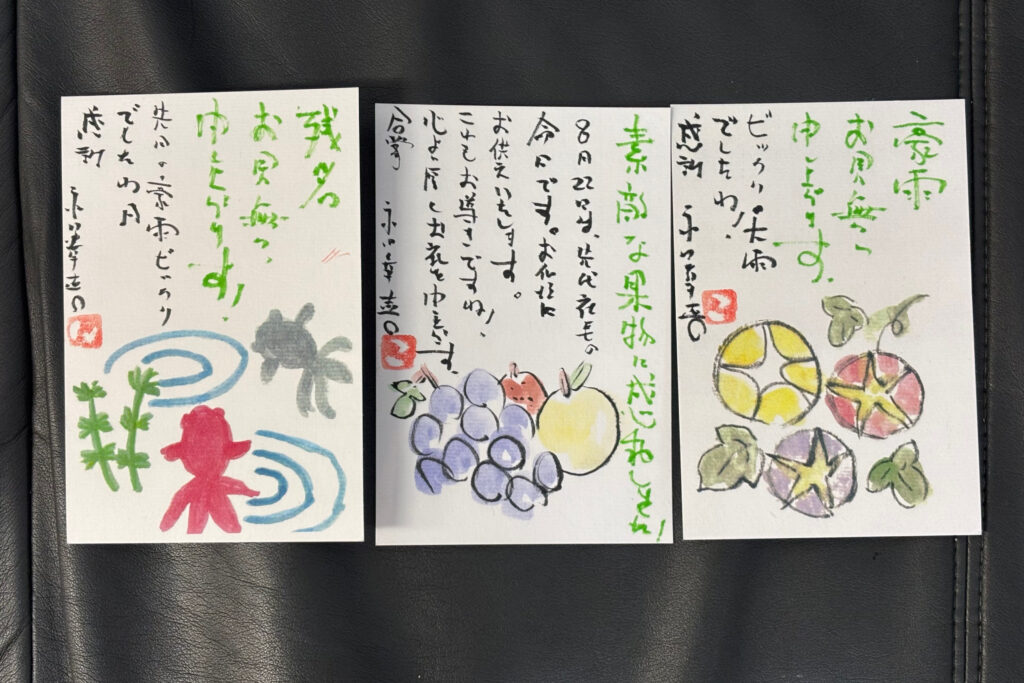 残暑
お見舞い
申し上げます!
先日の豪雨ビックリ
でしたわ
感謝
素敵な果物に
8月22日は、先代
命日です。お仏壇に
お供えいたします。
これもお導きですね!
心より厚くお礼を申し上げます。
合掌
豪雨
お見舞い
申し上げます。
ビックリの大雨
でしたわ!
感謝